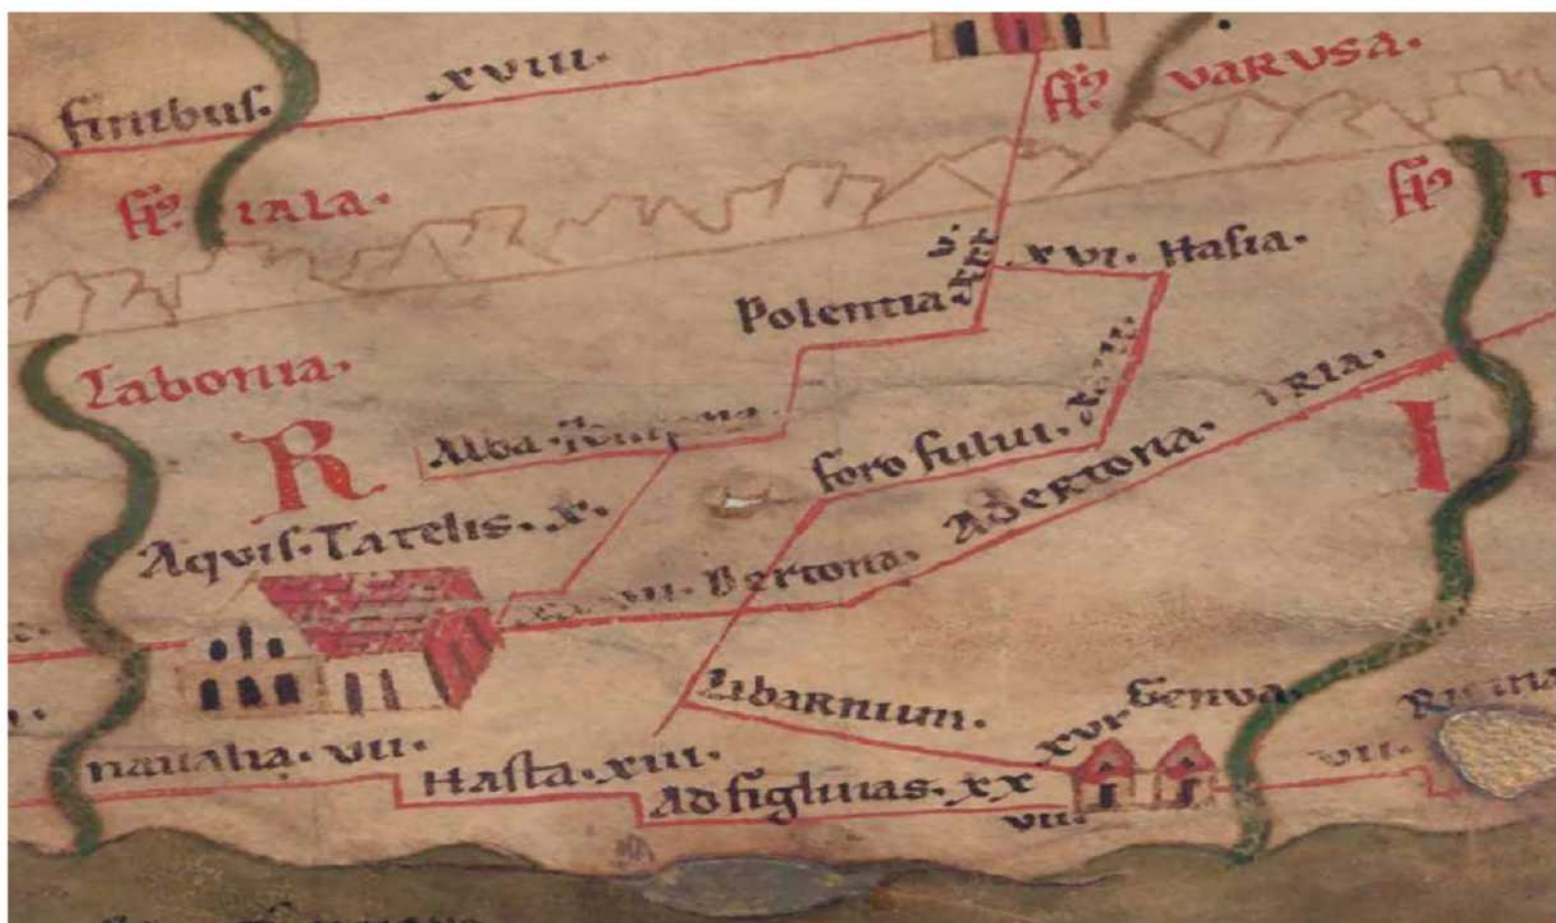 finibus. XVIII.
fl⁹. VARUSA.
fl⁹. IALA.
fl⁹
XVI. Hasia.
Polentia
Labonia.
R
Alba
foro fulvii.
IRIA.
I
Aquis. Tatelis. X.
Bertona. Adertona.
Libarnium.
Genua.
XVI
navalia. VII.
Hasta. XIII.
VII.
Ad figlinas. XX
VII.